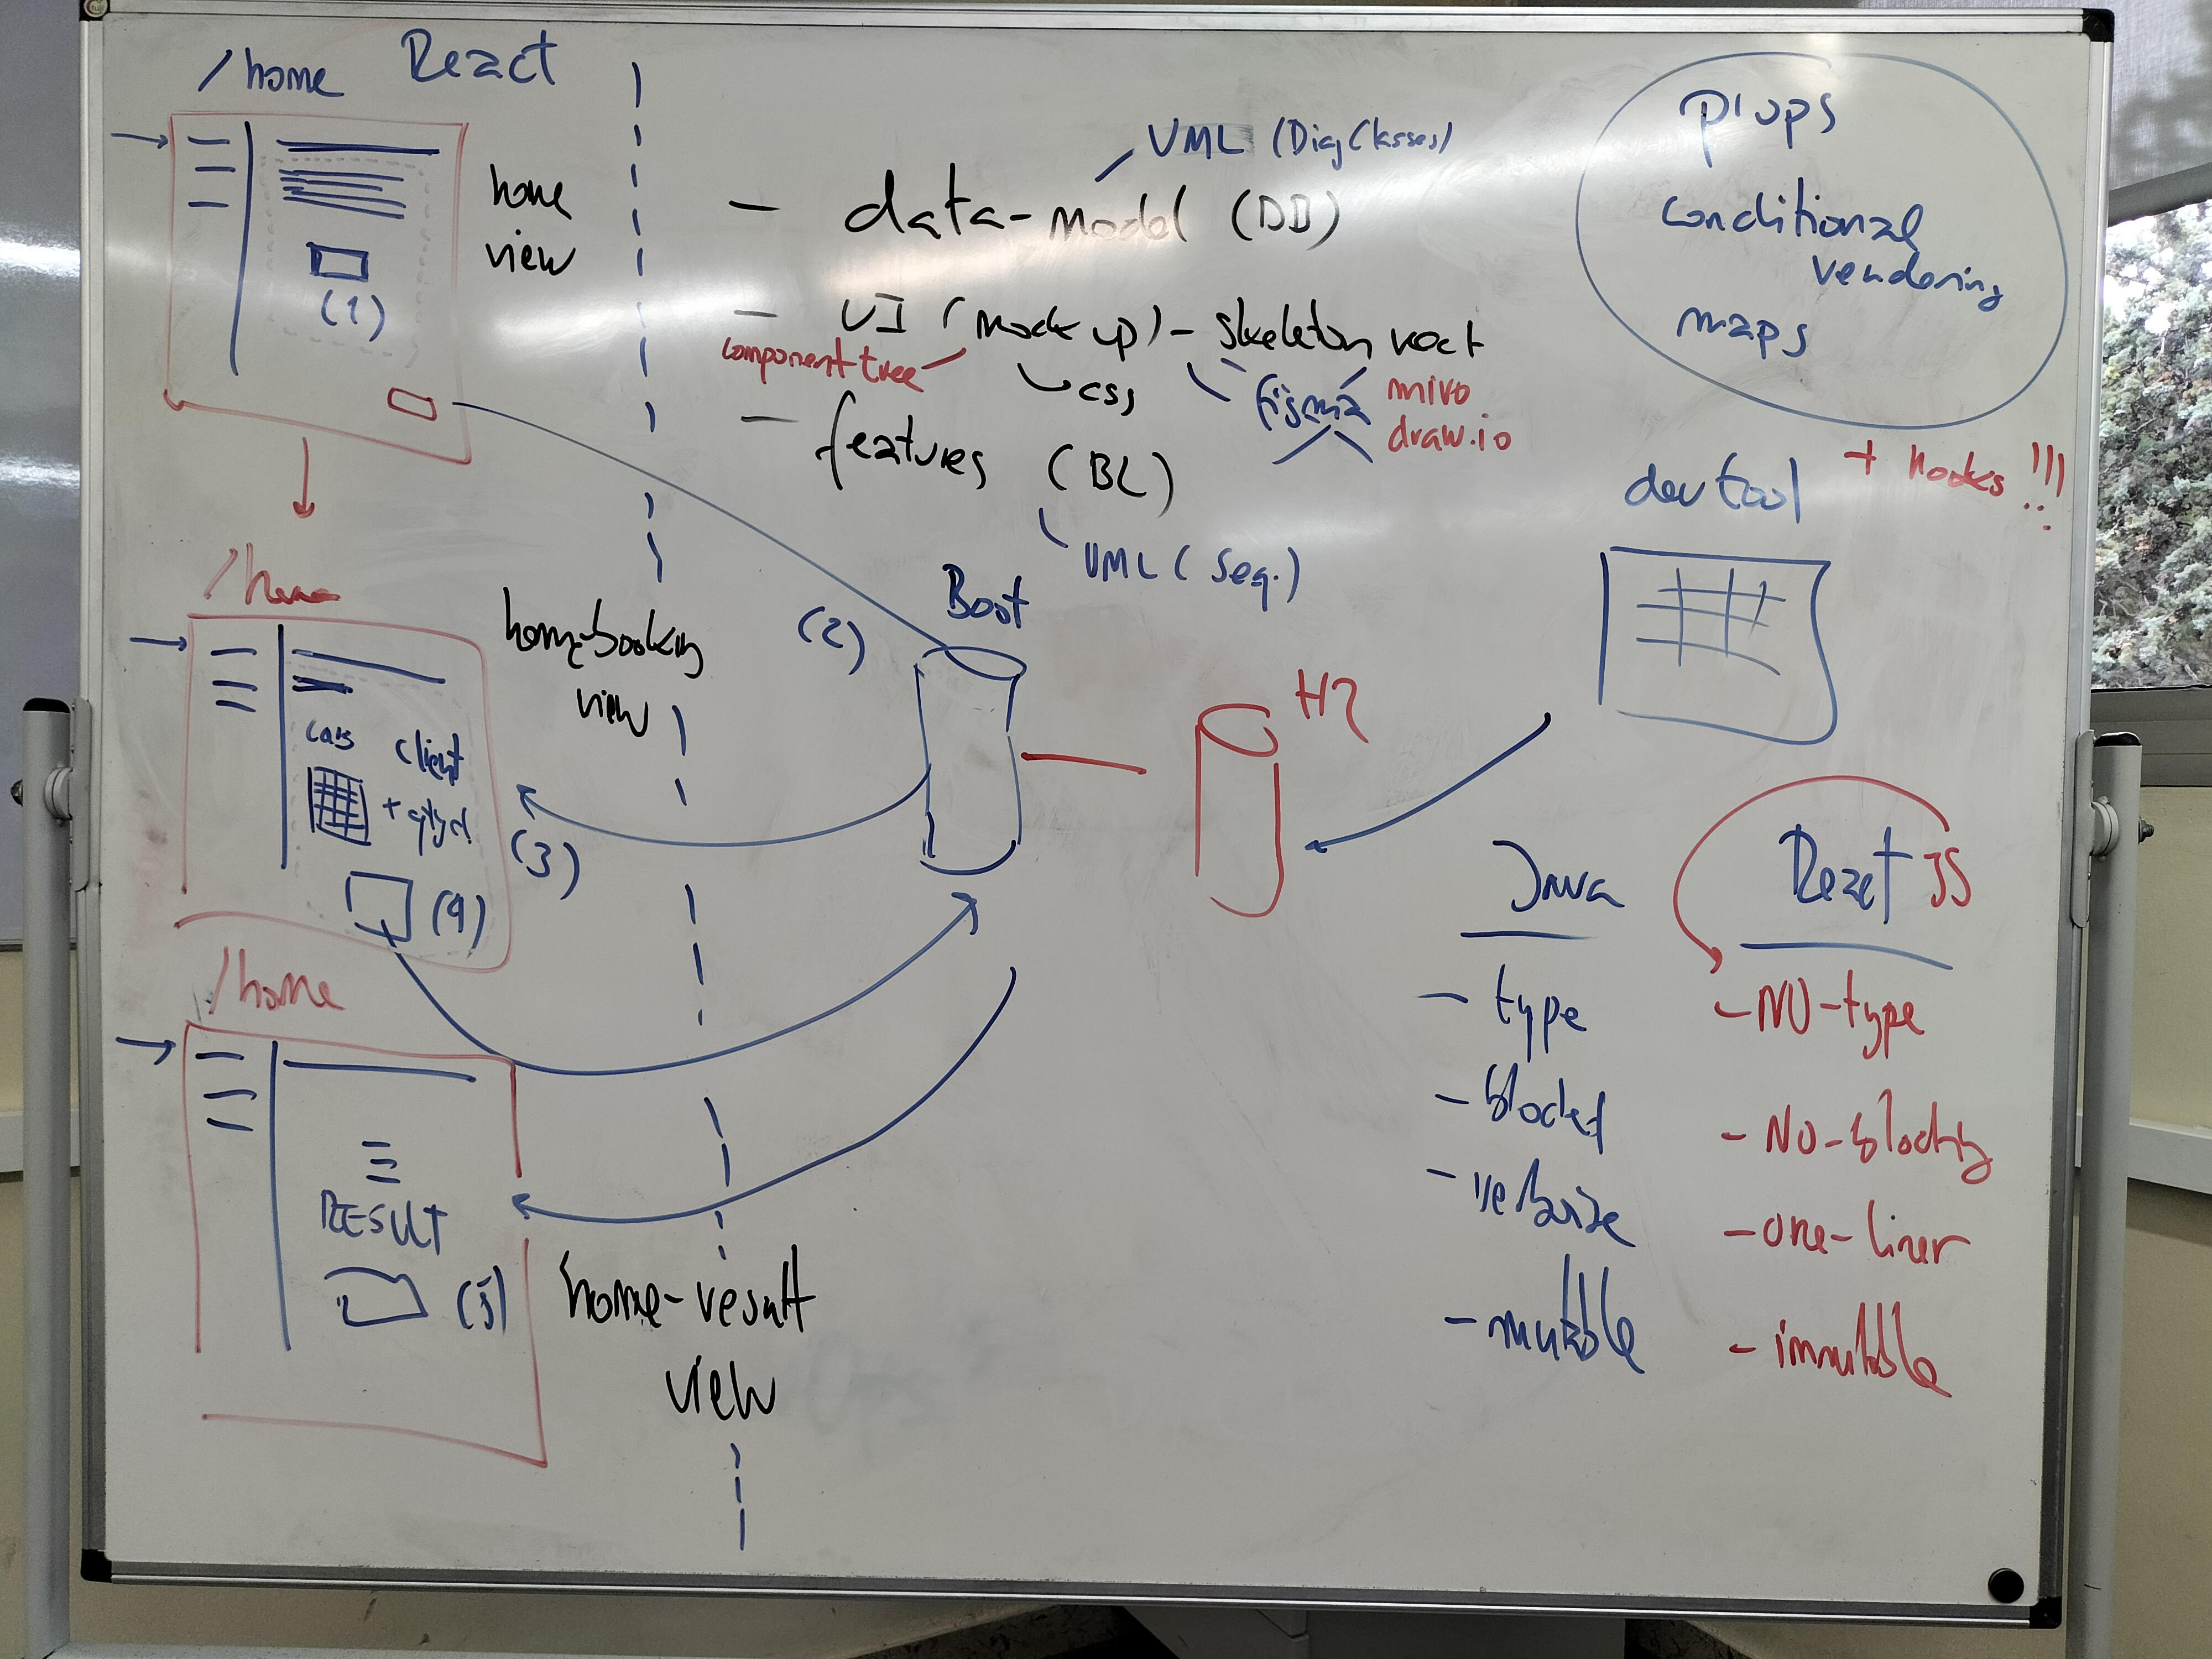 /home React
home
view
(1)
UML (Diag Classes)
- data-model (DB)
- UI (mock up) - skeleton react
component tree
css
figma
miro
draw.io
- features (BL)
UML (Seq.)
props
conditional
rendering
maps
+ hooks !!!
dev tool
/home
home-booking
view
cars
client
(2)
Boot
H2
(3)
(4)
/home
RESULT
(5)
home-result
view
Java
- type
- blocked
- verbose
- mutable
React JS
- NO-type
- NO-blocking
- one-liner
- inmutable